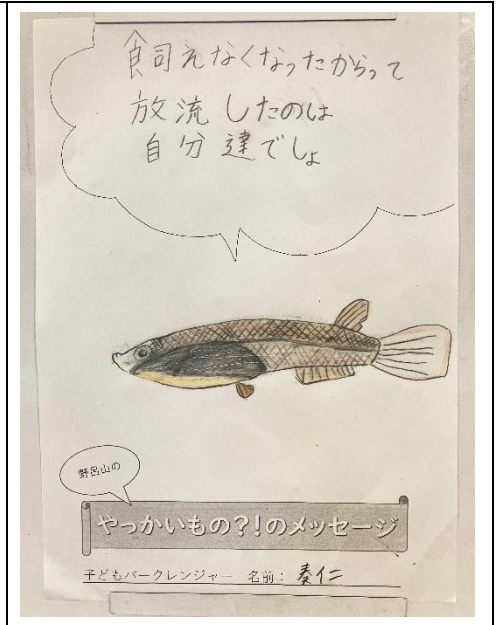 飼えなくなったからって
放流したのは
自分達でしょ
野呂山の
やっかいもの?!のメッセージ
子どもパークレンジャー 名前: 奏仁